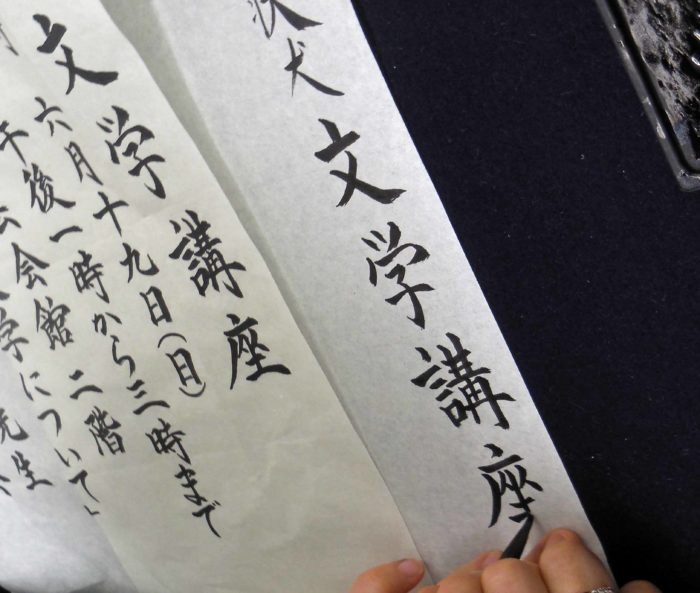 犬 文学講座
文学講座
六月十九日(日)
午後一時から三時まで
会館 二階
学について」
先生